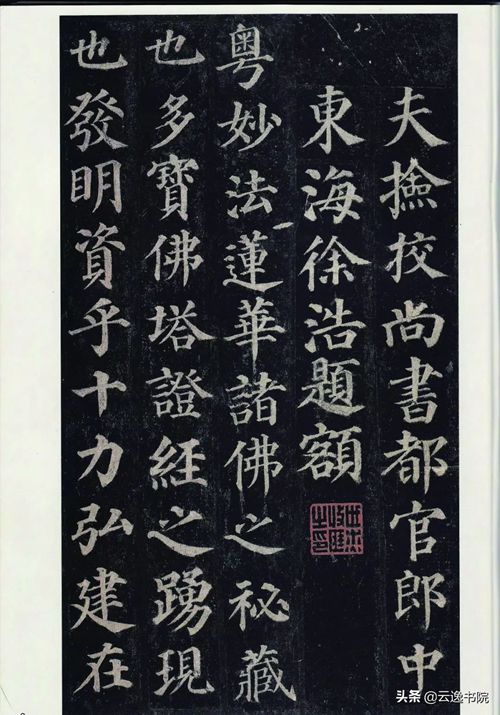 夫撿挍尚書都官郎中
東海徐浩題額
粵妙法蓮華諸佛之祕藏
也多寶佛塔證經之踴現
也發明資乎十力弘建在
头条 @云逸书院